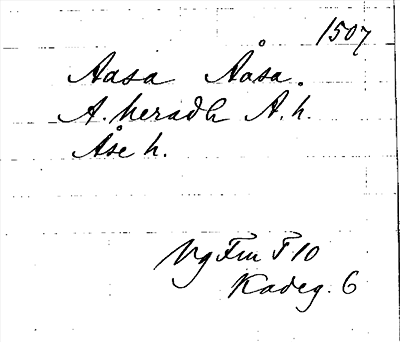 1507
Aasa Ååsa.
A. heradh Å. h.
Åse h.
Vg Fm F 10
Kadeg. 6